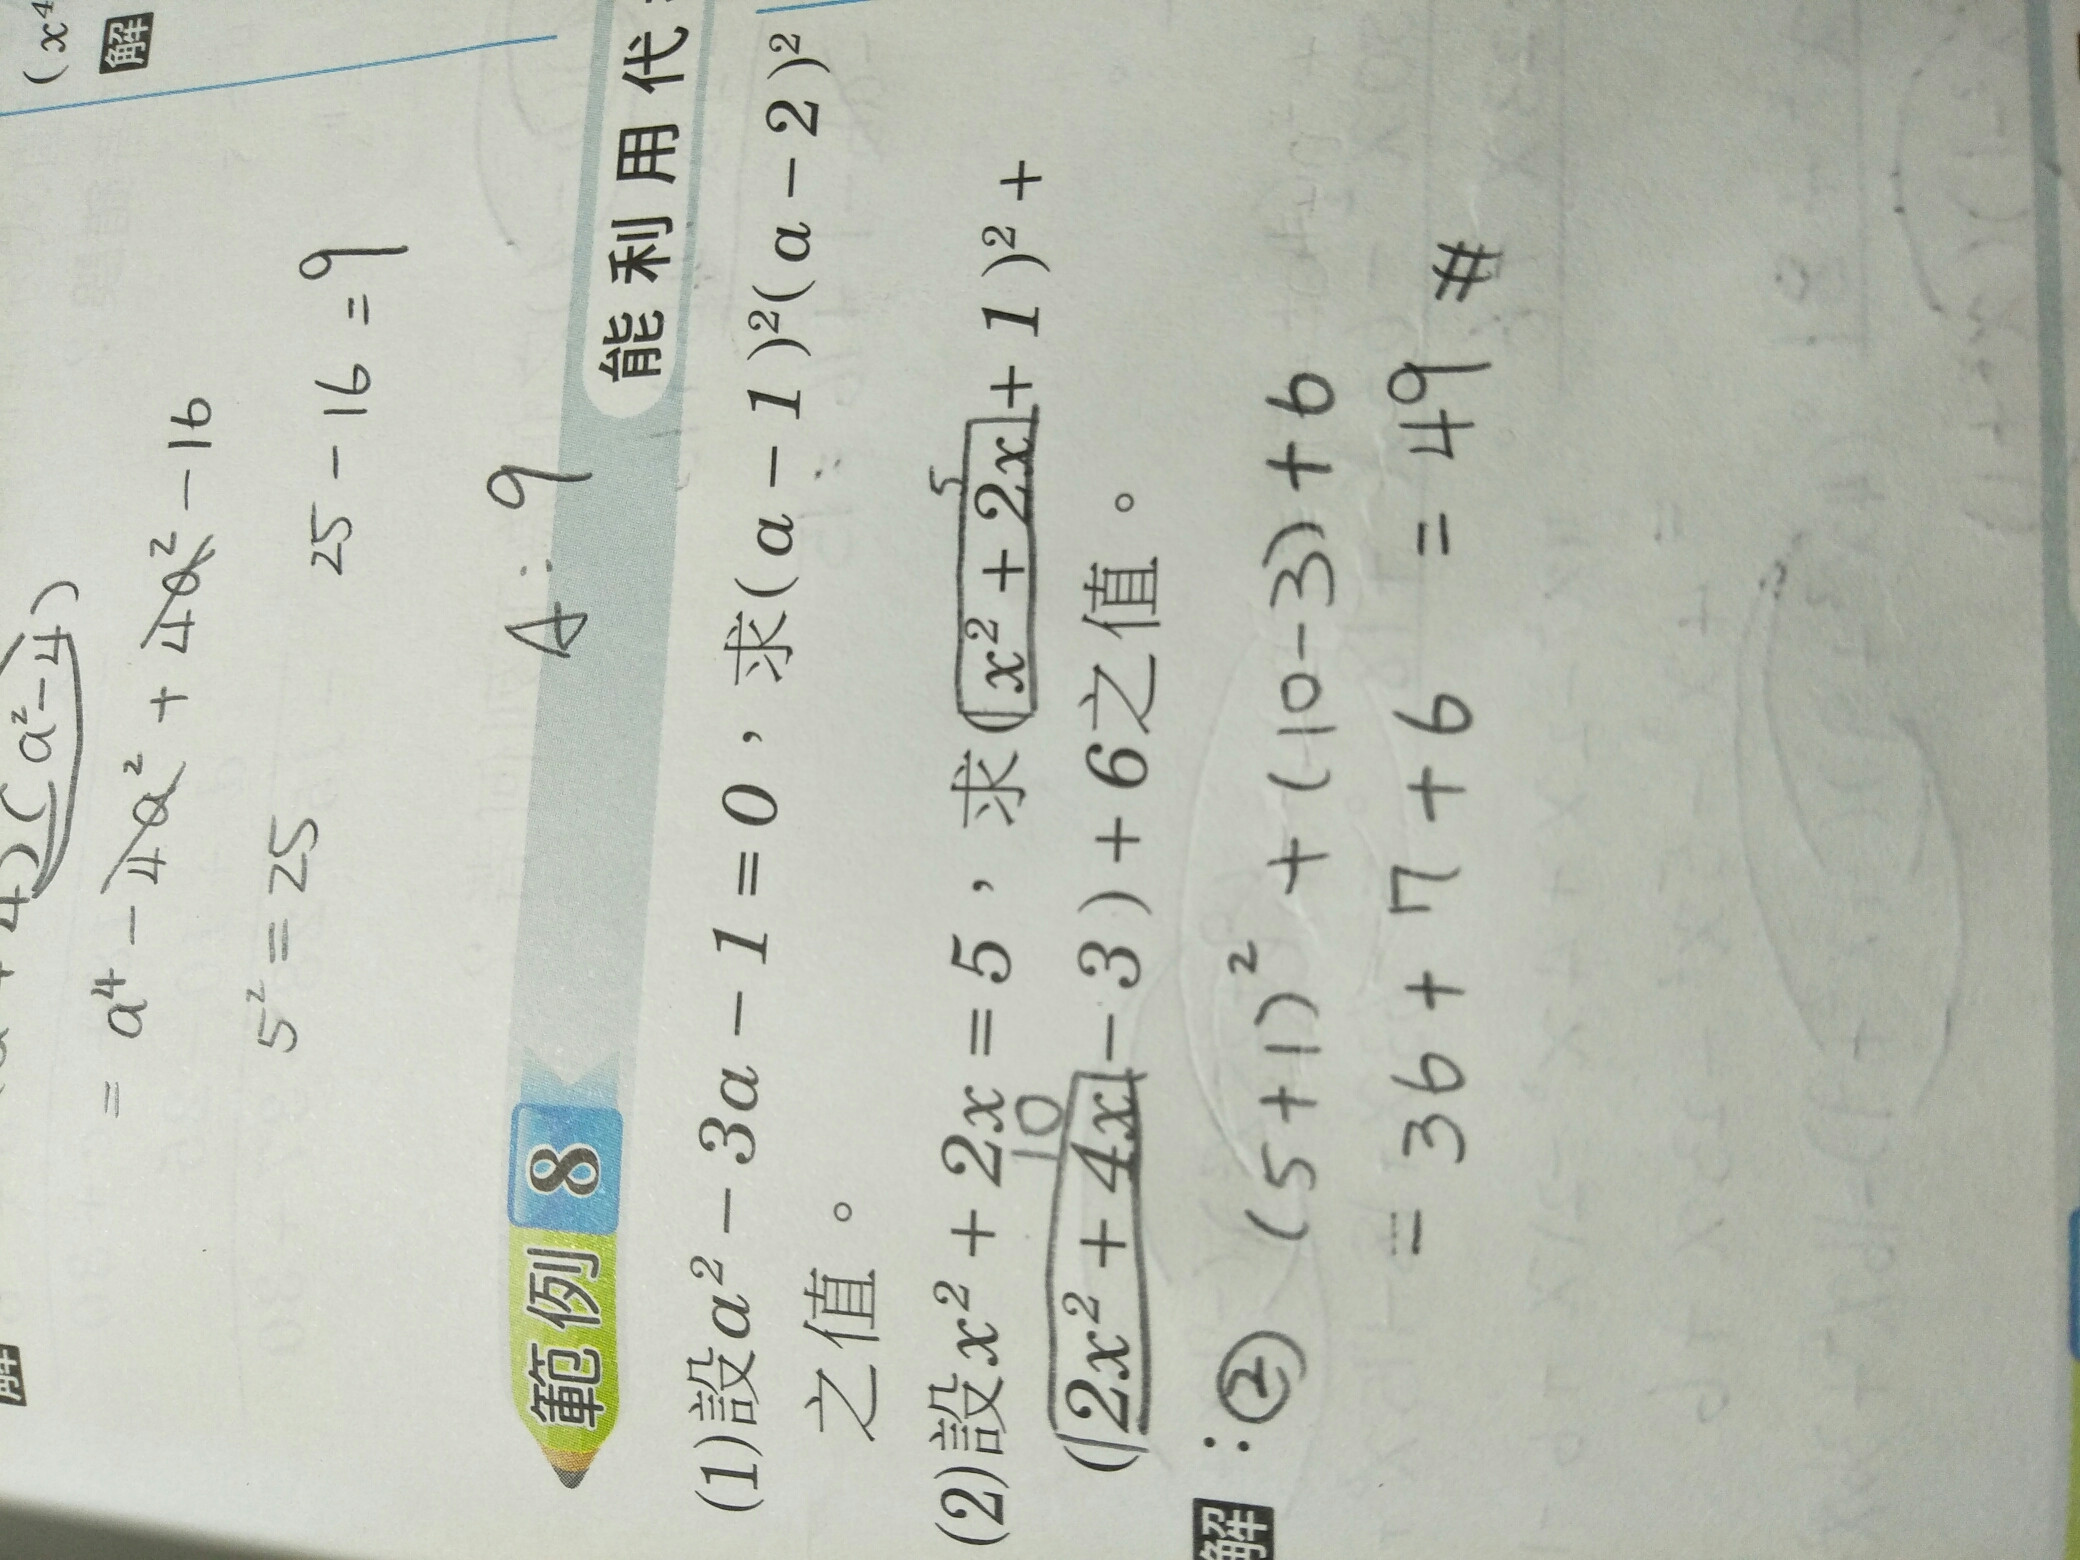 (a²-4)
= a⁴-4a²+4a²-16
5²=25 25-16=9
A:9
(x⁴
解
範例 8 能利用代
(1)設a²-3a-1=0，求(a-1)²(a-2)²
之值。
(2)設x²+2x=5，求(x²+2x+1)²+
5
10
(2x²+4x-3)+6之值。
解:② (5+1)²+(10-3)+6
=36+7+6=49#